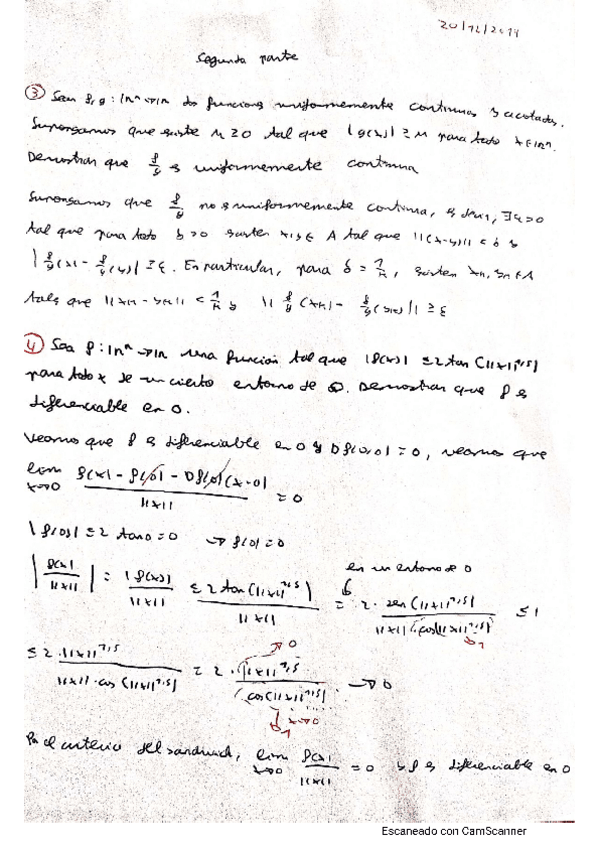 20/12/2019
Segunda parte
③ Sean f, g: ℝⁿ → ℝ dos funciones uniformemente continuas y acotadas.
Supongamos que existe M ≥ 0 tal que |g(x)| ≥ M para todo x ∈ ℝⁿ.
Demostrar que f/g es uniformemente continua
Supongamos que f/g no es uniformemente continua, es decir, ∃ε>0
tal que para todo δ>0 existen x, y ∈ A tal que ||(x-y)|| < δ y
|f/g(x) - f/g(y)| ≥ ε. En particular, para δ = 1/n, existen xn, yn ∈ A
tales que ||xn - yn|| < 1/n y || f/g (xn) - f/g (yn) || ≥ ε
④ Sea f: ℝⁿ → ℝ una función tal que |f(x)| ≤ 2 tan (||x||^7/5)
para todo x de un cierto entorno de 0. Demostrar que f es
diferenciable en 0.
Veamos que f es diferenciable en 0 y Df(0,0) = 0, veamos que
lim x→0 (f(x) - f(0) - Df(0)(x-0)) / ||x|| = 0
|f(0)| ≤ 2 tan 0 = 0 → f(0) = 0
en un entorno de 0
|f(x)/||x||| = |f(x)|/||x|| ≤ 2 tan(||x||^7/5)/||x|| = 2 · sen(||x||^7/5)/(||x|| · cos(||x||^7/5)) ≤ 1
→ 1
→ 0
≤ 2 · ||x||^7/5 / (||x|| · cos(||x||^7/5)) = 2 · ||x||^2/5 / cos(||x||^7/5) → 0
x→0
→ 1
Por el criterio del sandwich, lim x→0 f(x)/||x|| = 0 y f es diferenciable en 0
Escaneado con CamScanner